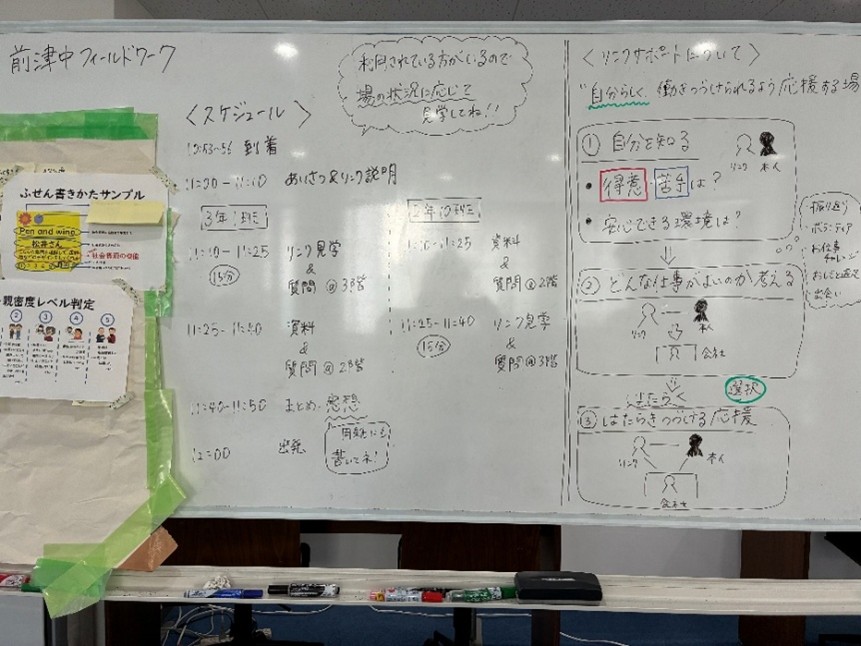 前津中フィールドワーク
利用されている方がいるので
場の状況に応じて
見学してね!!
〈スケジュール〉
到着
あいさつ&リンク説明
3年 1班
11:10-11:25 リンク見学
&
15分
質問@3階
11:25-11:40 資料
&
質問@2階
資料
&
質問@2階
11:25-11:40 リンク見学
15分
&
質問@3階
11:40-11:50 まとめ・感想
12:00 出発
用紙にも
書いてネ!
〈リンクサポートについて〉
"自分らしく、働きつづけられるよう応援する場
① 自分を知る
リンク 本人
・得意・苦手は?
・安心できる環境は?
振り返り
・ボランティア
・お仕事
出会い
② どんな仕事がよいのか考える
リンク 本人
会社
はたらく
選択
③ はたらきつづける応援
リンク 本人
会社
ふせん書きかたサンプル
Pen and wing
松井さん
親密度レベル判定
② ③ ④ ⑤